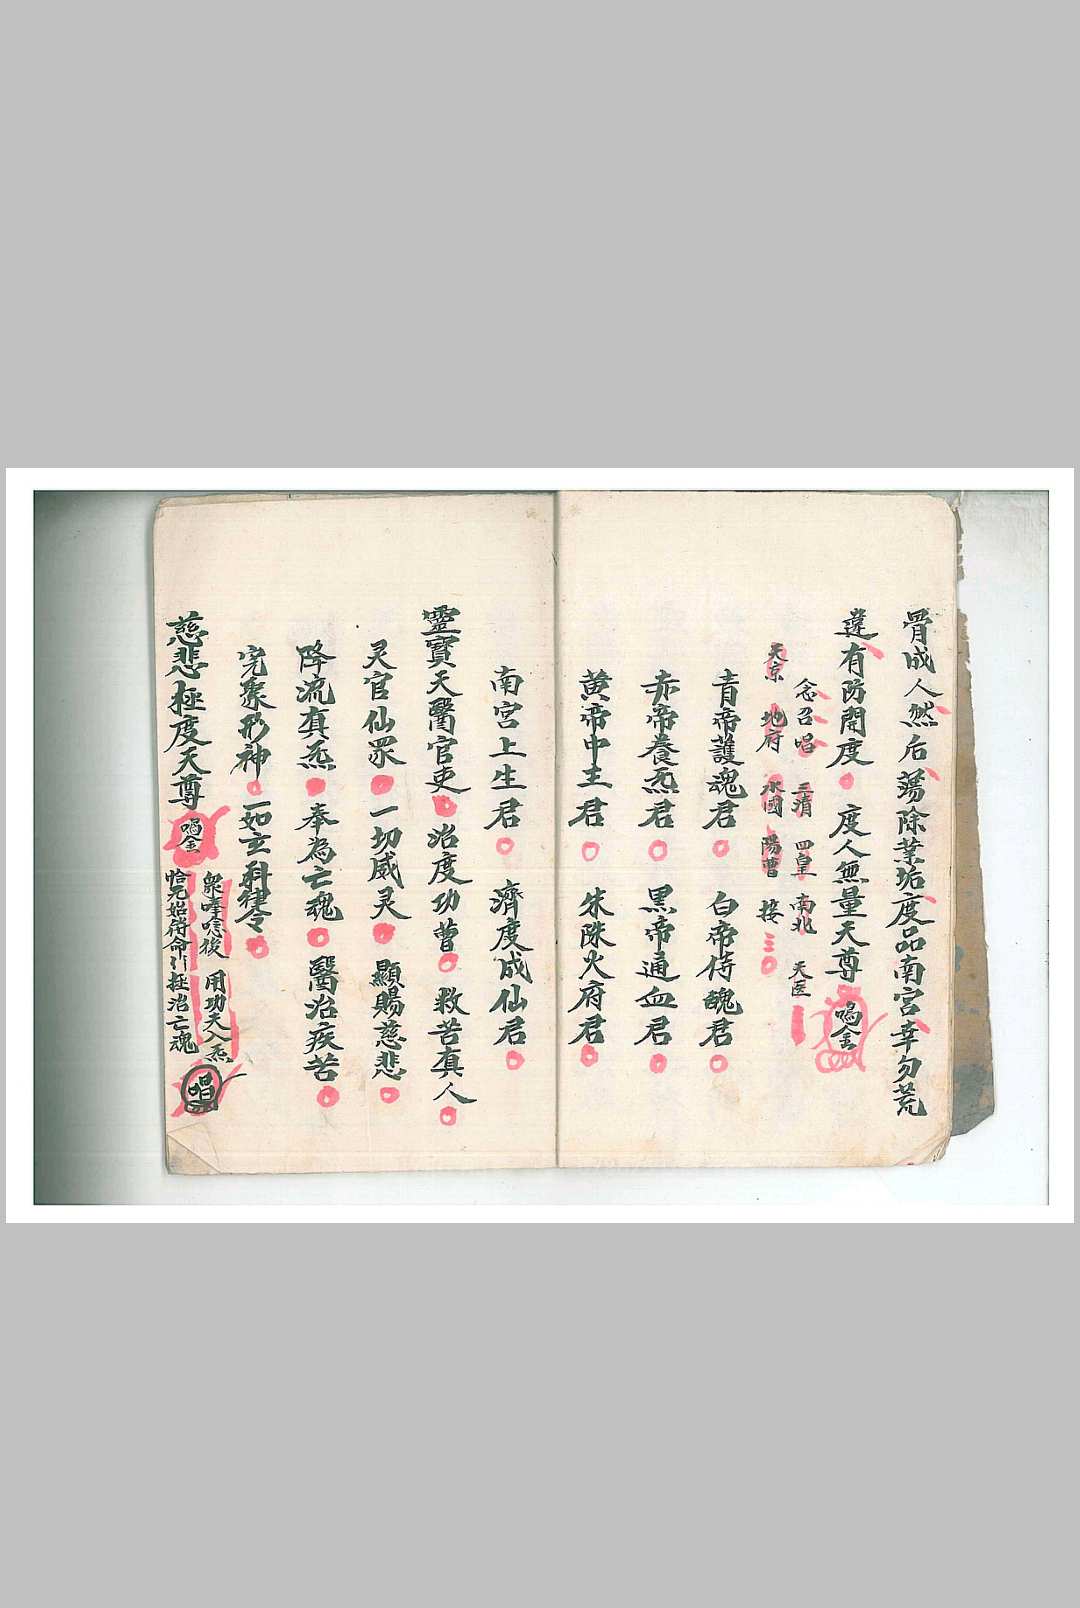 骨成人然后蕩除業垢度品南宮幸勿荒
違有防開度 度人無量天尊 唱金
念召唱 三清 四皇 南北 天医
天京 地府 水國 陽曹 接三
青帝護魂君 白帝侍魄君
赤帝養炁君 黑帝通血君
黄帝中主君 朱陵火府君
南宮上生君 濟度成仙君
靈寶天醫官吏 治度功曹 救苦真人
灵官仙眾 一切威灵 顯賜慈悲
降流真炁 奉為亡魂 醫治疾苦
完聚形神 一如玄科律令
慈悲拯度天尊 唱金
眾唪唸後 用功天入炁
恰元始符命 拯治亡魂 唱